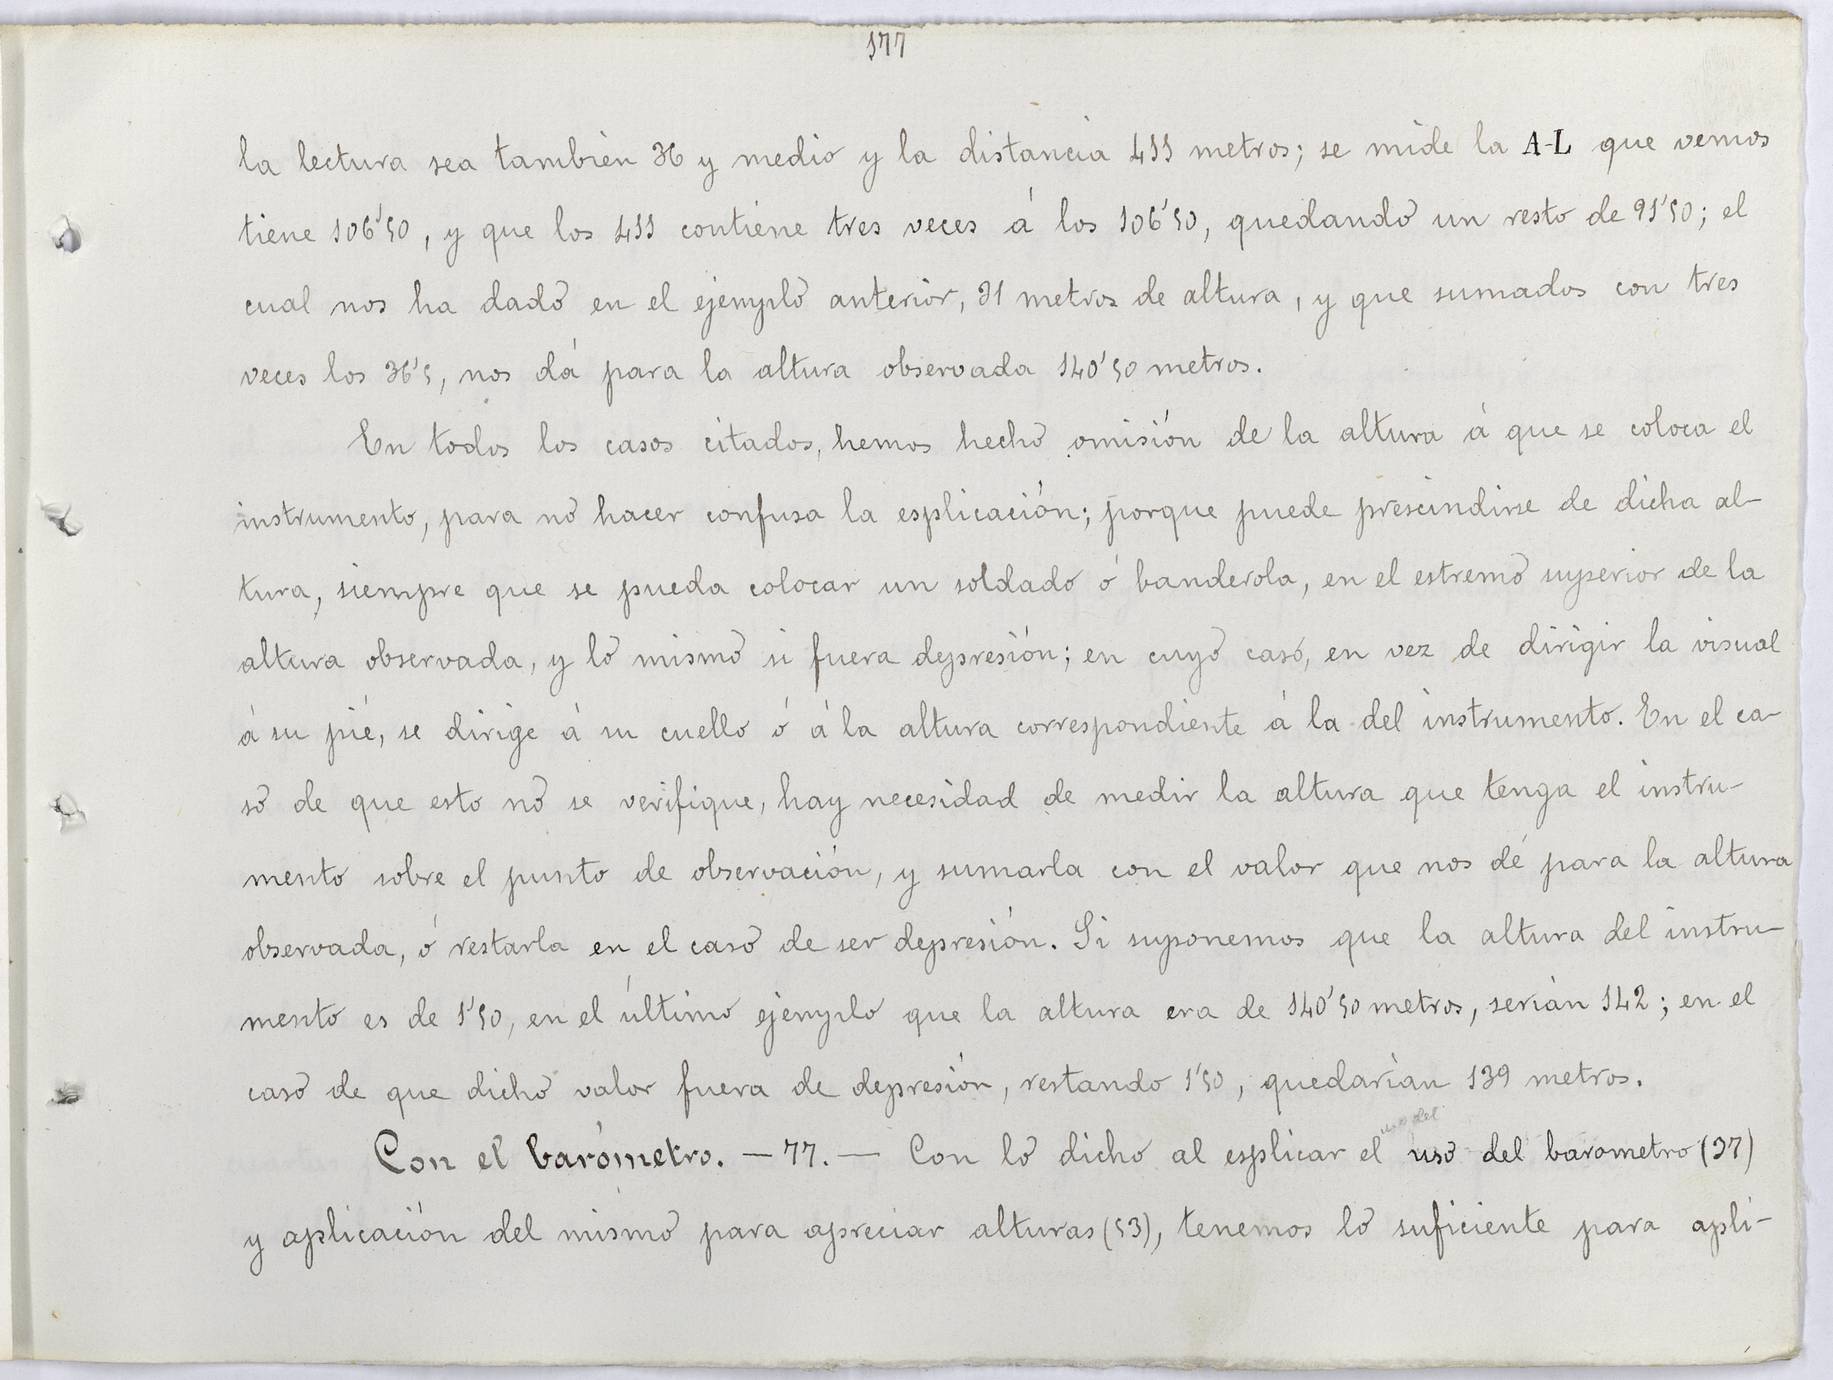 177
la lectura sea también 36 y medio y la distancia 411 metros; se mide la A-L que vemos
tiene 106'50, y que los 411 contiene tres veces á los 106'50, quedando un resto de 91'50; el
cual nos ha dado en el ejemplo anterior, 31 metros de altura, y que sumados con tres
veces los 36'5, nos dá para la altura observada 140'50 metros.
En todos los casos citados, hemos hecho omisión de la altura á que se coloca el
instrumento, para no hacer confusa la esplicación; porque puede prescindirse de dicha al-
tura, siempre que se pueda colocar un soldado ó banderola, en el estremo superior de la
altura observada, y lo mismo si fuera depresión; en cuyo caso, en vez de dirigir la visual
á su pié, se dirige á su cuello ó á la altura correspondiente á la del instrumento. En el ca-
so de que esto no se verifique, hay necesidad de medir la altura que tenga el instru-
mento sobre el punto de observación, y sumarla con el valor que nos dé para la altura
observada, ó restarla en el caso de ser depresión. Si suponemos que la altura del instru-
mento es de 1'50, en el último ejemplo que la altura era de 140'50 metros, serián 142; en el
caso de que dicho valor fuera de depresión, restando 1'50, quedarían 139 metros.
uso del
Con el barómetro. — 77. — Con lo dicho al esplicar el uso del barometro (37)
y aplicación del mismo para apreciar alturas (53), tenemos lo suficiente para apli-